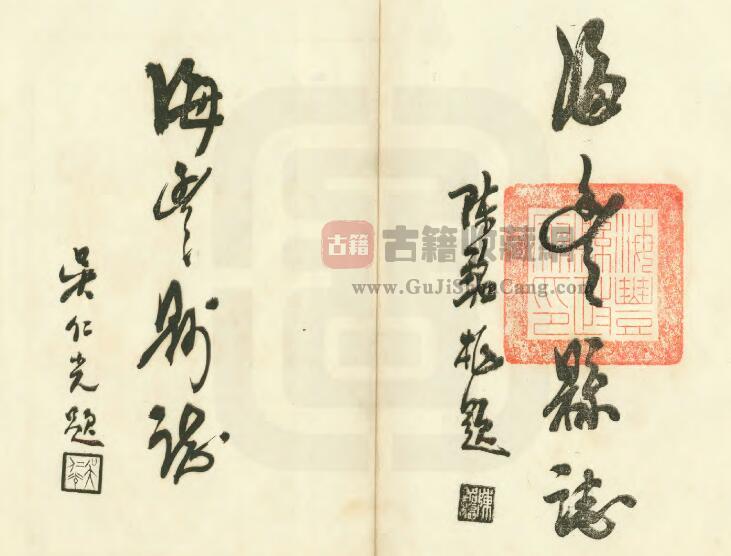 海豐縣誌
陈
題
海豐縣誌
吴仁光題
古籍
古籍收藏網
www.GuJiShouCang.com